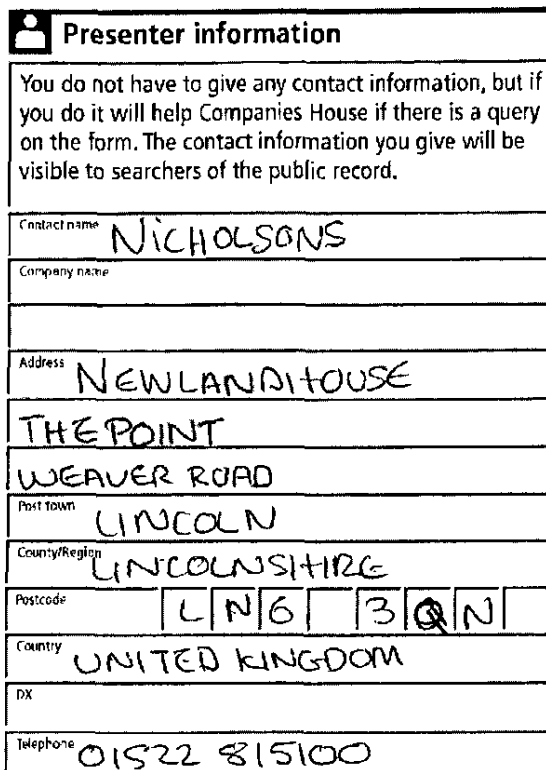 Presenter information
You do not have to give any contact information, but if
you do it will help Companies House if there is a query
on the form. The contact information you give will be
visible to searchers of the public record.
Contact name NICHOLSONS
Company name
Address NEWLAND HOUSE
THE POINT
WEAVER ROAD
Post town LINCOLN
County/Region LINCOLNSHIRE
Postcode LN6 3QN
Country UNITED KINGDOM
DX
Telephone 01522 815100